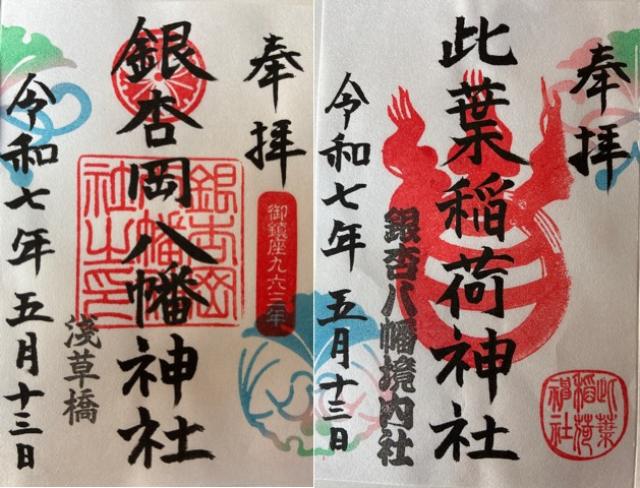 奉拝
御鎮座九六三年
銀杏岡八幡神社
銀杏岡
八幡神
社之印
淺草橋
令和七年五月十三日
奉拝
此葉稲荷神社
此葉
稲荷
神社
銀杏八幡境内社
令和七年五月十三日